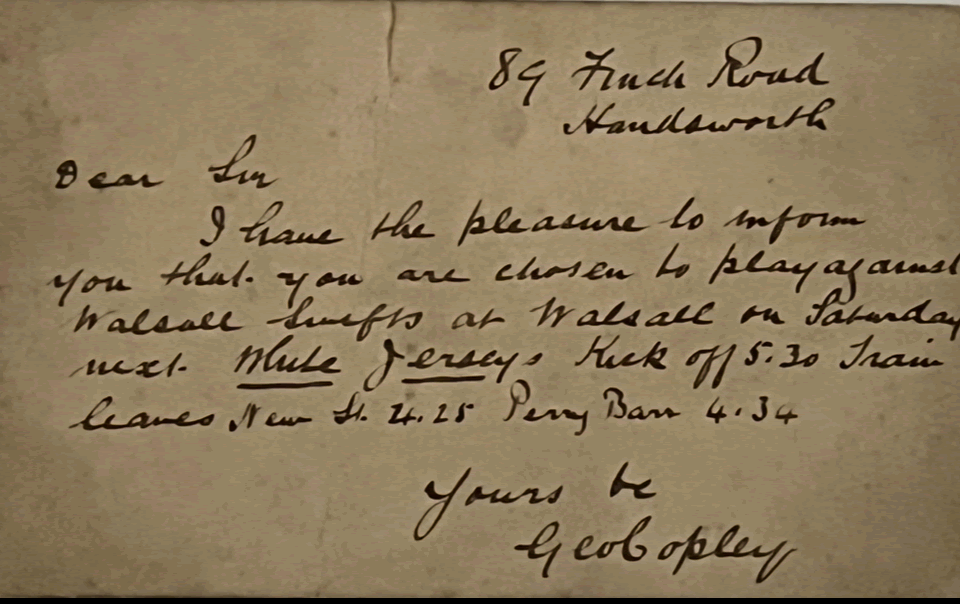 89 Finch Road
Handsworth
Dear Sir
I have the pleasure to inform
you that you are chosen to play against
Walsall Swifts at Walsall on Saturday
next. White Jerseys Kick off 5.30 Train
leaves New St. 4.25 Perry Barr 4.34
Yours &c
Geo Copley